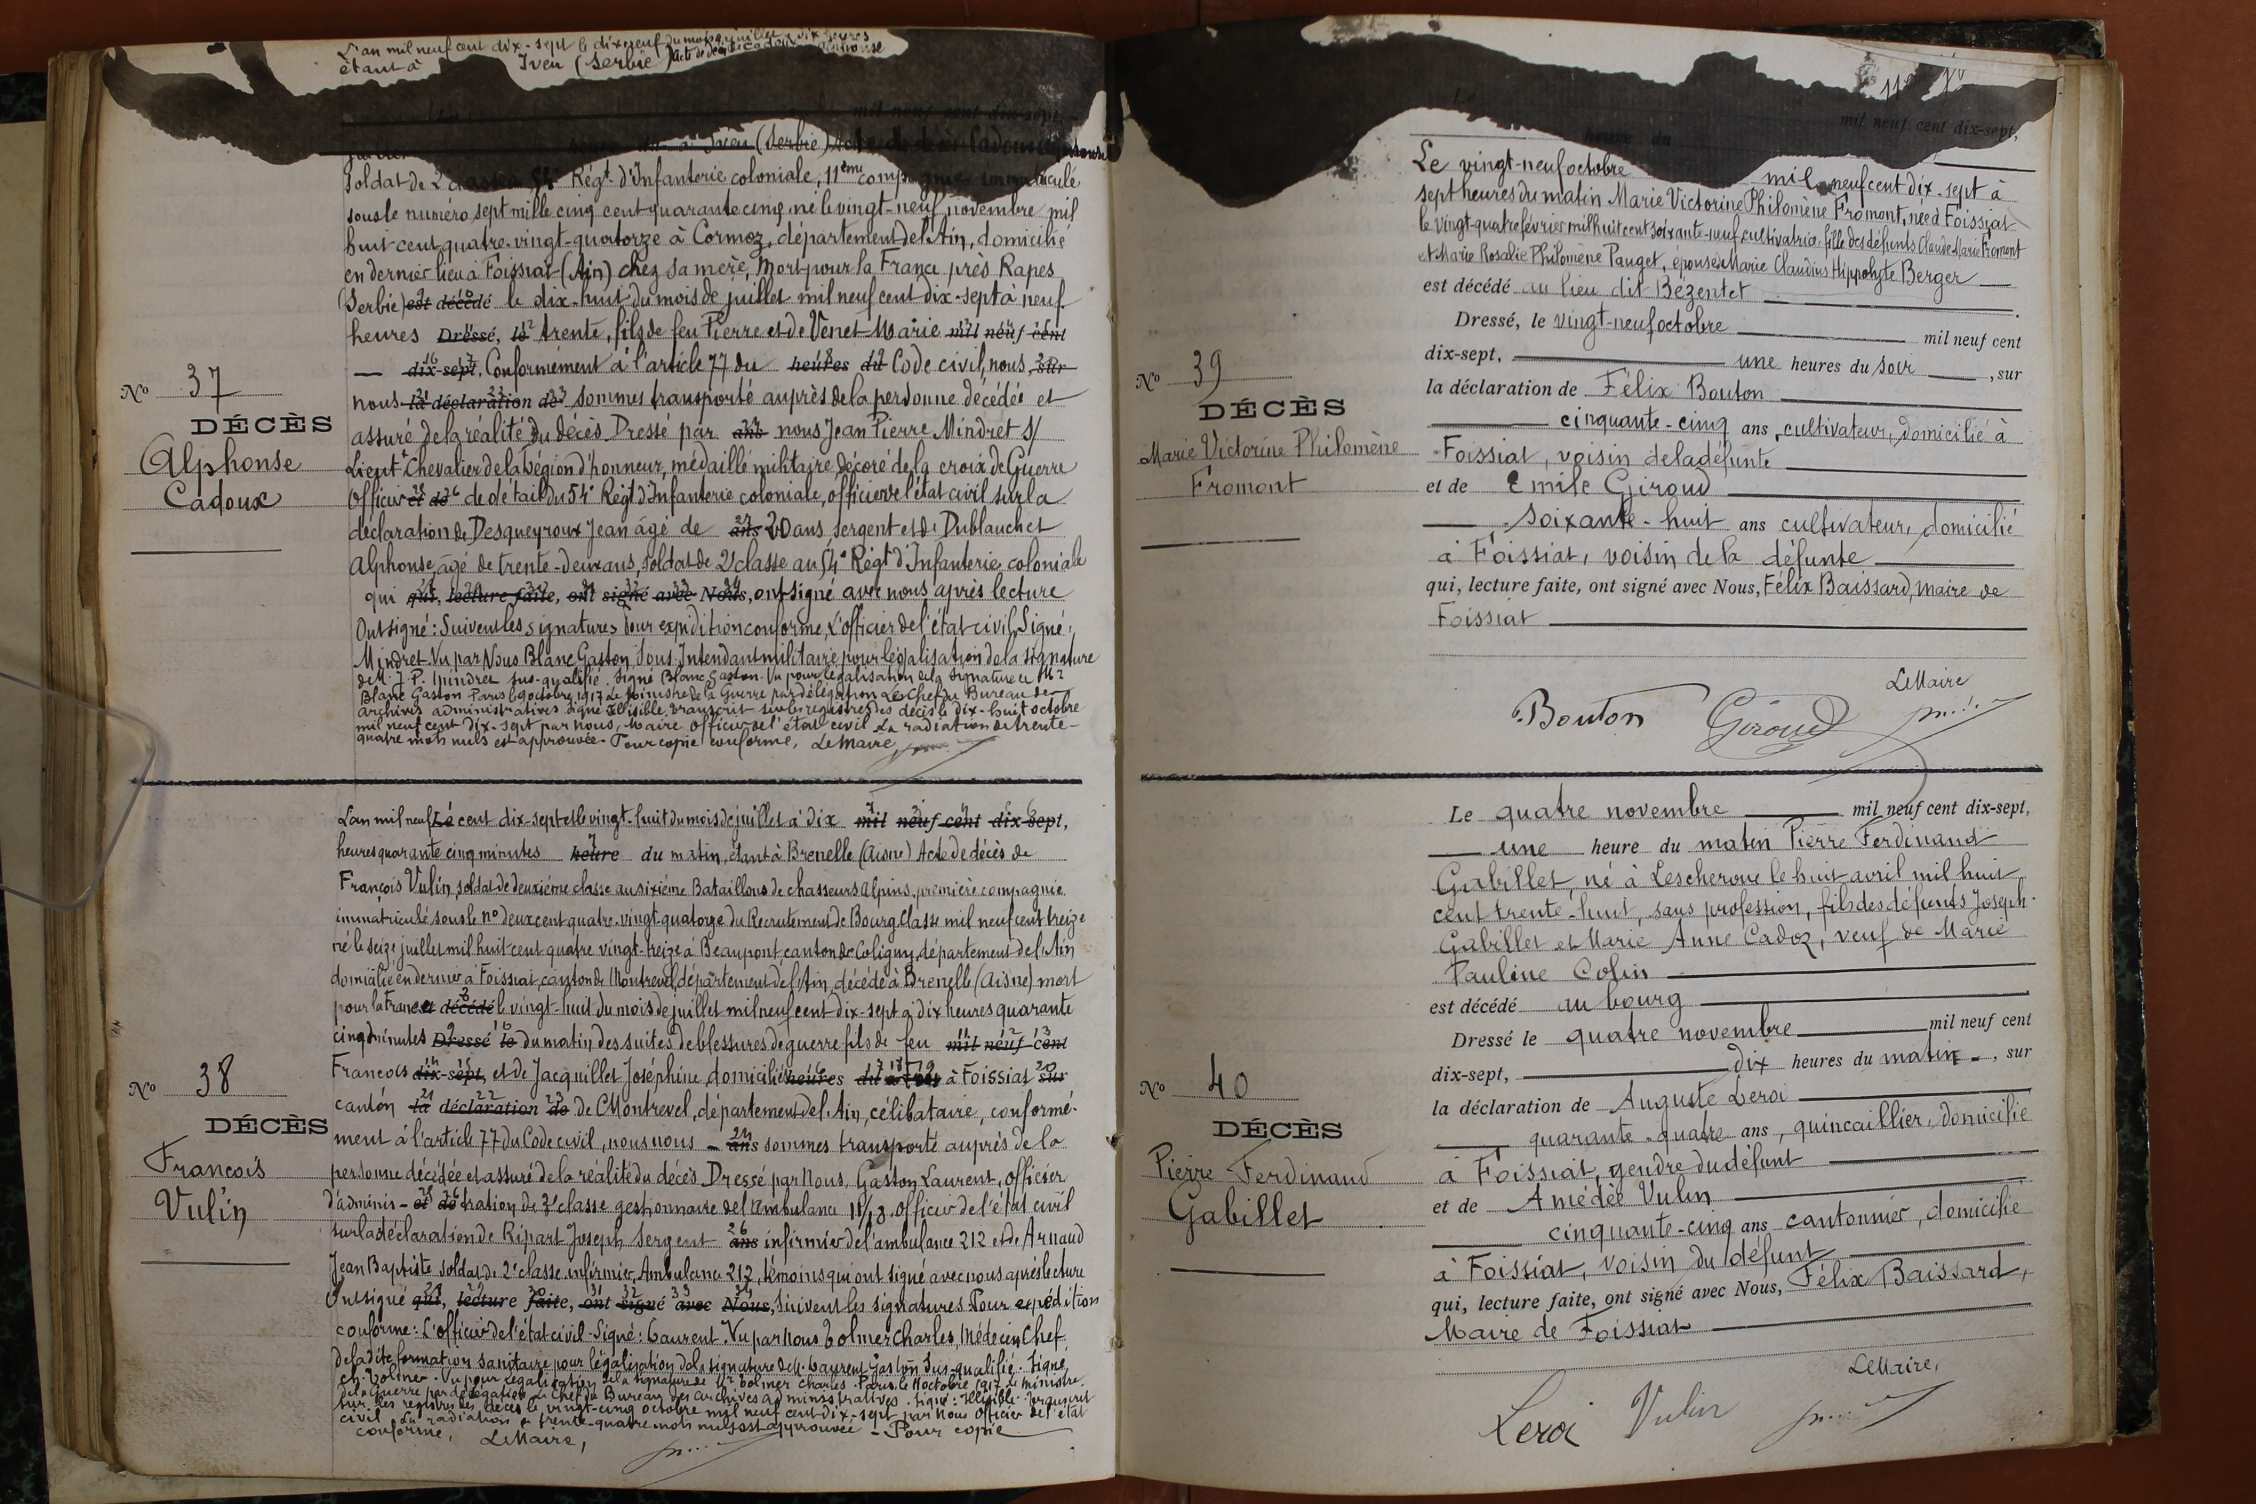 L'an mil neuf cent dix-sept le dix neuf du mois de juillet à dix heures
étant à Iven (Serbie) Acte de décès de Cadoux Alphonse
mil neuf cent dix-sept,
à Iven (Serbie) Acte de décès Cadoux Alphonse
Soldat de 2e classe au 54e Régt d'Infanterie coloniale, 11ème compagnie immatriculé
sous le numéro sept mille cinq cent quarante cinq né le vingt-neuf novembre mil
huit cent quatre-vingt-quatorze à Cormoz, département de l'Ain, domicilié
en dernier lieu à Foissiat (Ain) chez sa mère, Mort pour la France près Rapes
(Serbie) est décédé le dix-huit du mois de juillet mil neuf cent dix-sept à neuf
heures Dressé, le trente, fils de feu Pierre et de Venet Marie mil neuf cent
dix-sept, Conformément à l'article 77 du heures du Code civil, nous, sur
nous la déclaration de sommes transporté auprès de la personne décédée et
assuré de la réalité du décès Dressé par ans nous Jean Pierre Mindret S/
Lieut. Chevalier de la Légion d'honneur, médaillé militaire décoré de la croix de Guerre
Officier et de de détail du 54e Régt d'Infanterie coloniale, officier de l'état civil sur la
déclaration de Desqueyroux Jean âgé de ans 20 ans, Sergent et de Dublauchet
Alphonse, âgé de trente-deux ans, soldat de 2e classe au 54e Régt d'Infanterie coloniale
qui qui, lecture faite, ont signé avec Nous, ont signé avec nous après lecture
Ont signé : Suivent les signatures pour expédition conforme, L'officier de l'état civil, Signé :
Mindret. Vu par Nous Blanc Gaston, Sous-Intendant militaire pour légalisation de la signature
de M. J. P. Mindret sus-qualifié. Signé Blanc Gaston. Vu pour légalisation de la signature de Mr
Blanc Gaston Paris le 9 octobre 1917 Le Ministre de la Guerre par délégation Le Chef du Bureau des
archives administratives signé Illisible, transcrit sur les registres des décès le dix-huit octobre
mil neuf cent dix-sept par nous, Maire officier de l'état civil La radiation de trente-
quatre mots nuls est approuvée. Pour copie conforme, Le Maire,
No 37
DÉCÈS
Alphonse
Cadoux
L'an mil neuf Le cent dix-sept et le vingt-huit du mois de juillet à dix mil neuf cent dix-sept,
heures quarante cinq minutes heure du matin, étant à Brenelle (Aisne) Acte de décès de
François Vulin, soldat de deuxième classe au sixième Bataillons de chasseurs alpins, première compagnie
immatriculé sous le no deux cent quatre-vingt-quatorze du Recrutement de Bourg classe mil neuf cent treize
né le seize juillet mil huit cent quatre vingt-treize à Beaupont canton de Coligny, département de l'Ain
domicilié en dernier à Foissiat, canton de Montrevel, département de l'Ain, décédé à Brenelle (Aisne) mort
pour la France est décédé le vingt-huit du mois de juillet mil neuf cent dix-sept à dix heures quarante
cinq minutes Dressé le du matin des suites de blessures de guerre fils de feu mil neuf cent
François dix-sept, et de Jacquillet Joséphine, domiciliés heures du à Foissiat sur
canton la déclaration de de Montrevel, département de l'Ain, célibataire, conformé-
ment à l'article 77 du Code civil, nous nous ans sommes transporté auprès de la
personne décédée et assuré de la réalité du décès Dressé par Nous, Gaston Laurent, Officier
d'adminis- et de tration de 3e classe gestionnaire de l'ambulance 11/13. Officier de l'état civil
sur la déclaration de Ripart Joseph Sergent ans infirmier de l'ambulance 212 et de Arnaud
Jean Baptiste soldat de 2e classe infirmier, Ambulance 212, témoins qui ont signé avec nous après lecture
Ont signé qui, lecture faite, ont signé avec Nous, suivent les signatures. Pour expédition
conforme : L'officier de l'état civil. Signé : Laurent. Vu par nous Bolmer Charles, Médecin Chef
de la dite formation sanitaire pour légalisation de la signature de M. Laurent Gaston sus-qualifié. Signé
ch. Bolmer. Vu pour légalisation de la signature de Mr Bolmer Charles. Paris, le 11 octobre 1917 Le ministre
de la Guerre par délégation Le Chef du Bureau des archives administratives. Signé : Illisible. Transcrit
sur les registres des décès le vingt-cinq octobre mil neuf cent dix-sept par nous Officier de l'état
civil. La radiation de trente-quatre mots nuls est approuvée - Pour copie
conforme, Le Maire,
No 38
DÉCÈS
François
Vulin
heure du
mil neuf cent dix-sept,
Le vingt-neuf octobre mil neuf cent dix-sept à
sept heures du matin Marie Victorine Philomène Fromont, née à Foissiat
le vingt-quatre février mil huit cent soixante-neuf, cultivatrice, fille des défunts Claude Marie Fromont
et Marie Rosalie Philomène Pauget, épouse Marie Claudius Hippolyte Berger
est décédé au lieu dit Bézentet
Dressé, le vingt-neuf octobre mil neuf cent
dix-sept, une heures du soir, sur
la déclaration de Félix Bouton
cinquante-cinq ans, cultivateur, domicilié à
Foissiat, voisin de la défunte
et de Emile Giroud
soixante-huit ans cultivateur, domicilié
à Foissiat, voisin de la défunte
qui, lecture faite, ont signé avec Nous, Félix Baissard, maire de
Foissiat
Le Maire
Bouton Giroud
No 39
DÉCÈS
Marie Victorine Philomène
Fromont
Le quatre novembre mil neuf cent dix-sept,
une heure du matin Pierre Ferdinand
Gabillet, né à Lescheroux le huit avril mil huit
cent trente-huit, sans profession, fils des défunts Joseph
Gabillet et Marie Anne Cadoz, veuf de Marie
Pauline Colin
est décédé au bourg
Dressé le quatre novembre mil neuf cent
dix-sept, dix heures du matin, sur
la déclaration de Auguste Leroi
quarante-quatre ans, quincaillier, domicilié
à Foissiat, gendre du défunt
et de Amédée Vulin
cinquante-cinq ans cantonnier, domicilié
à Foissiat, voisin du défunt
qui, lecture faite, ont signé avec Nous, Félix Baissard,
Maire de Foissiat
Le Maire,
Leroi Vulin
No 40
DÉCÈS
Pierre Ferdinand
Gabillet